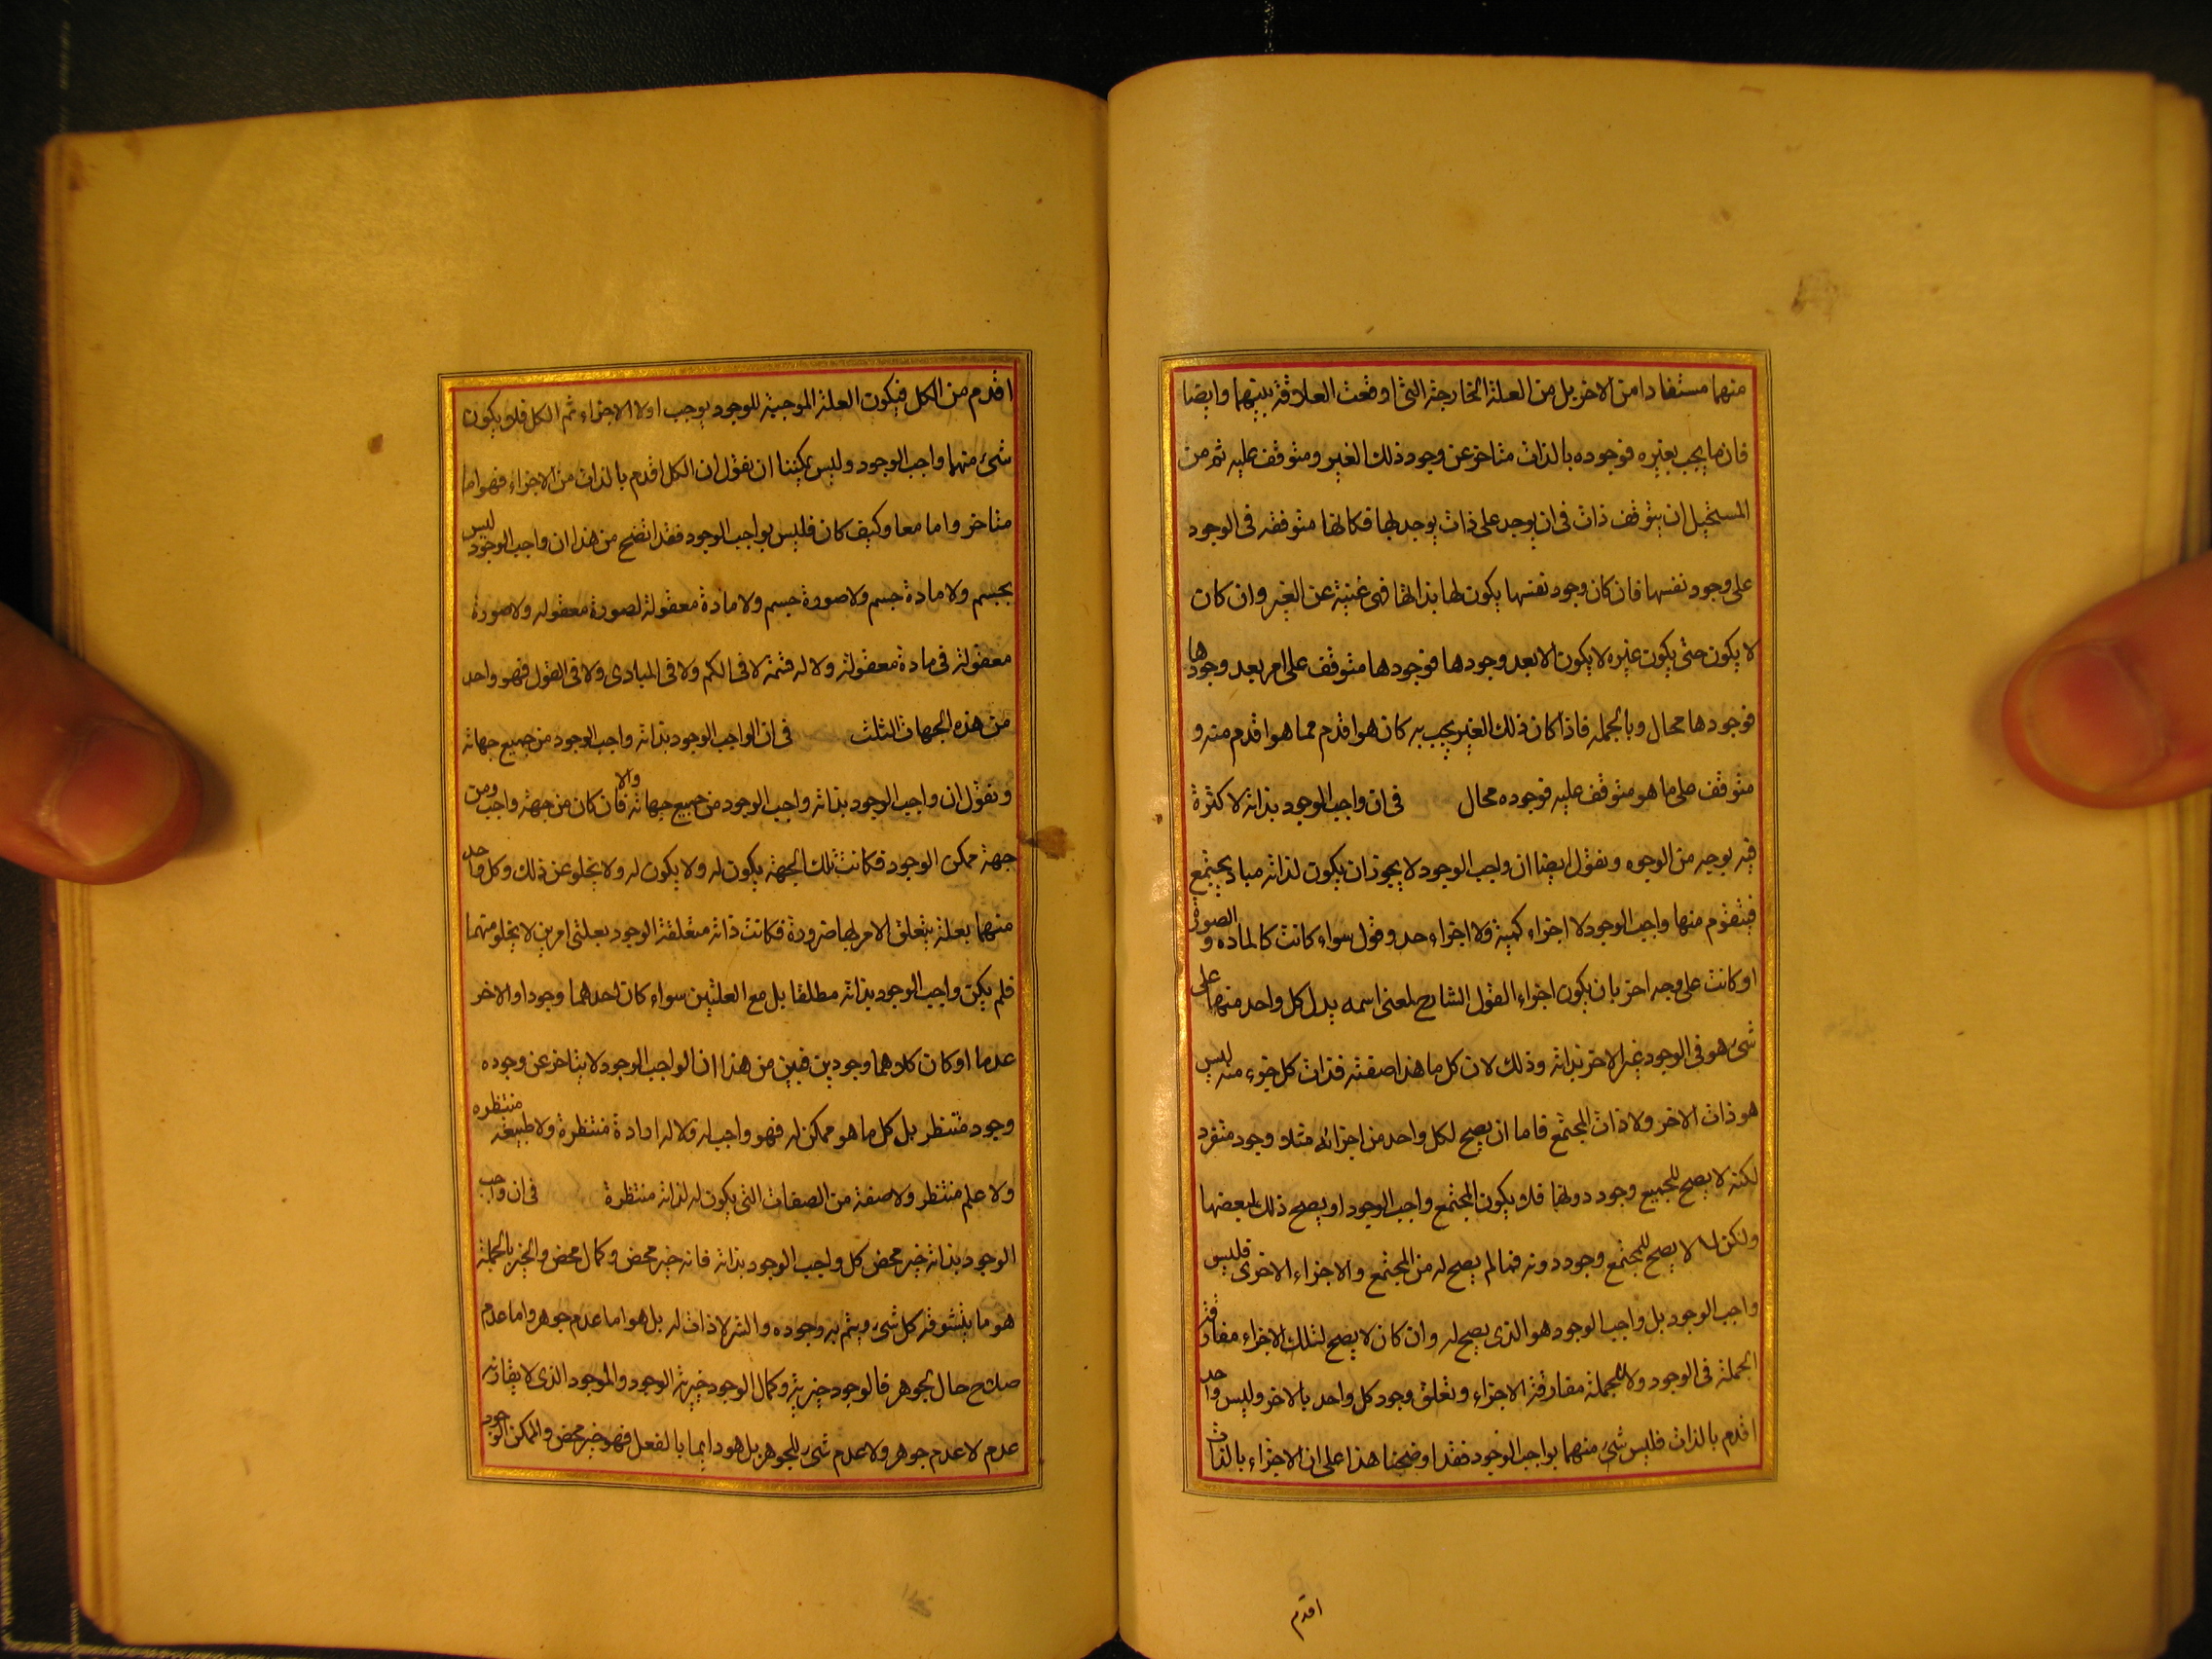 منهما مستفادا من الاخر بل من العلة الخارجة التى اوقعت العلاقة بينهما وايضا
فان ما يجب بغيره فوجوده بالذات متاخر عن وجود ذلك الغير ومتوقف عليه ثم من
المستحيل ان يتوقف ذات فى ان يوجد على ذات يوجد بها فكانها متوقفه فى الوجود
على وجود نفسها فان كان وجود نفسها يكون لها بذاتها فهى غنية عن الغير وان كان
لا يكون حتى يكون غيره لا يكون الا بعد وجودها فوجودها متوقف على امر بعد وجودها
فوجودها محال وبالجمله فاذا كان ذلك الغير يجب به كان هو اقدم مما هو اقدم منه و
متوقف على ما هو متوقف عليه فوجوده محال فى ان واجب الوجود بذاته لا كثرة
فيه بوجه من الوجوه ونقول ايضا ان واجب الوجود لا يجوز ان يكون لذاته مباد يجتمع
فيتقوم منها واجب الوجود لا اجزاء كمية ولا اجزاء حد وقول سواء كانت كالماده والصورة
او كانت على وجه اخر بان يكون اجزاء القول الشارح لمعنى اسمه يدل كل واحد منها على
شئ هو فى الوجود غير الاخر بذاته وذلك لان كل ما هذا صفته فذات كل جزء منه ليس
هو ذات الاخر ولا ذات المجتمع فاما ان يصح لكل واحد من اجزائه مثلا وجود منفرد
لكنه لا يصح للجميع وجود دونها فلا يكون المجتمع واجب الوجود او يصح ذلك لبعضها
ولكن لا يصح للمجتمع وجود دونه فما لم يصح له من المجتمع والاجزاء الاخرى فليس
واجب الوجود بل واجب الوجود هو الذى يصح له وان كان لا يصح لتلك الاجزاء مفارقة
الجملة فى الوجود ولا للجملة مفارقة الاجزاء وتعلق وجود كل واحد بالاخر وليس واحد
اقدم بالذات فليس شئ منهما بواجب الوجود فقد اوضحنا هذا على ان الاجزاء بالذات
اقدم
اقدم من الكل فيكون العلة الموجبة للوجود يوجب اولا الاجزاء ثم الكل فلا يكون
شئ منهما واجب الوجود وليس يمكننا ان نقول ان الكل اقدم بالذات من الاجزاء فهو اما
متاخر واما معا وكيف كان فليس بواجب الوجود فقد اتضح من هذا ان واجب الوجود ليس
بجسم ولا مادة جسم ولا صورة جسم ولا مادة معقولة لصورة معقوله ولا صورة
معقولة فى مادة معقولة ولا له قسمة لا فى الكم ولا فى المبادى ولا فى القول فهو واحد
من هذه الجهات الثلث فى ان الواجب الوجود بذاته واجب الوجود من جميع جهاته
ونقول ان واجب الوجود بذاته واجب الوجود من جميع جهاته والا فان كان من جهة واجب ومن
جهة ممكن الوجود فكانت تلك الجهة يكون له ولا يكون له ولا يخلو عن ذلك وكل واحد
منهما بعلة يتعلق الامر بها ضرورة فكانت ذاته متعلقة الوجود بعلتى امرين لا يخلو منهما
فلم يكن واجب الوجود بذاته مطلقا بل مع العلتين سواء كان احدهما وجودا والاخر
عدما او كان كلاهما وجودين فبين من هذا ان الواجب الوجود لا يتاخر عن وجوده
وجود منتظر بل كل ما هو ممكن له فهو واجب له فلا له ارادة منتظرة ولا طبيعه منتظره
ولا علم منتظر ولا صفة من الصفات التى يكون له لذاته منتظرة فى ان واجب
الوجود بذاته خير محض كل واجب الوجود بذاته فانه خير محض وكمال محض والخير بالجملة
هو ما يتشوقه كل شئ ويتم به وجوده والشر لا ذات له بل هو اما عدم جوهر واما عدم
صلاح حال لجوهر فالوجود خيرية وكمال الوجود خيرية الوجود والموجود الذى لا يقارنه
عدم لا عدم جوهر ولا عدم شئ للجوهر بل هو دايما بالفعل فهو خير محض والممكن الوجود